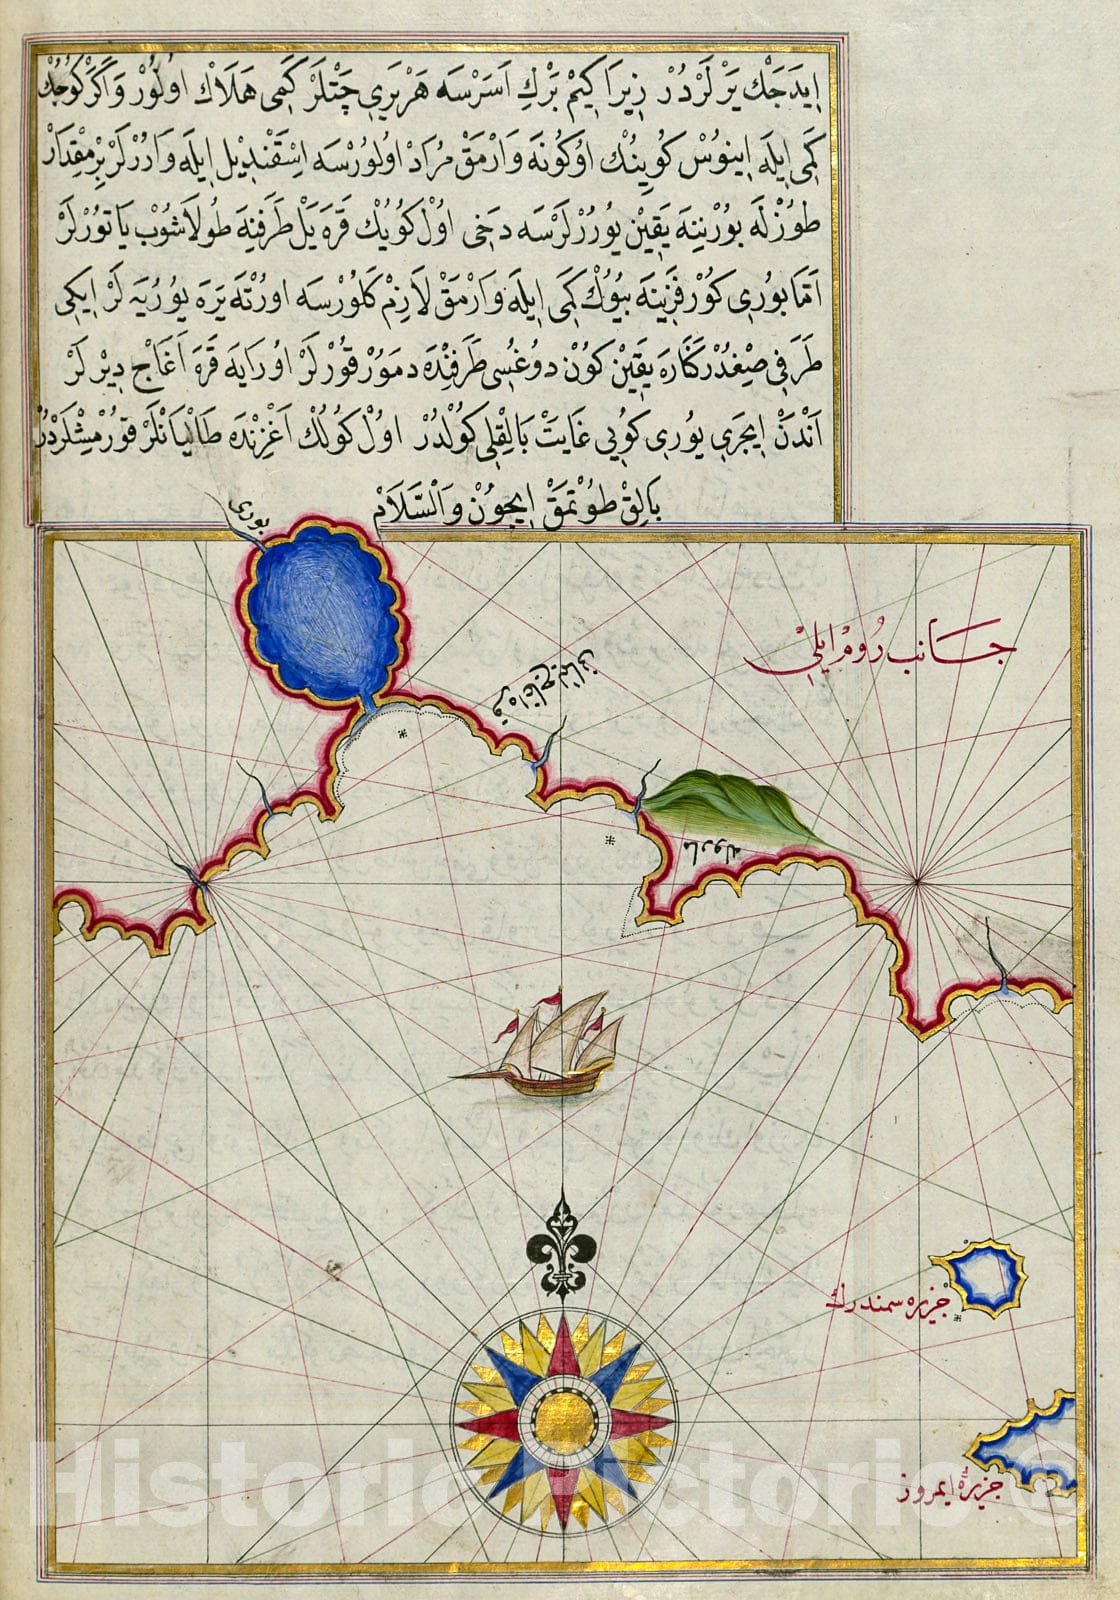 ايدَجَك يَرلَردُر زيرَا كِيم بَرْك اَسَرسَه هَر بَرى چَتلَر كَمى هَلَاك اولُور وَاكَر كوُجُك
كَمى ايلَه اينوُس كوُينُك اوُكوُنَه وَارمَق مُرَاد اولوُرسَه اِسقَنديل ايلَه وَارُرلَر بِر مِقدَار
طوُزلَه بوُرنِنَه يَقين يوُرُرلَرسَه دَخى اوُل كوُيُك قَرَه يَل طَرَفنَه طوُلاشوُب يَاتوُرلَر
اَمَّا بوُرى كوُرفَزينَه بيوُك كَمى ايلَه وَارمَق لَازِم كَلوُرسَه اورُتَه يَرَه يوُريَه لَر ايكى
طَرَفى صيغدُر كَنَارَه يَقين كوُن دوُغُسى طَرَفِندَه دمَوُر قوُرلَر اوُرَايَه قَرَه اَغَاج ديرلَر
اَندَن ايچَرى بوُرى كوُيى غَايَت بَالِقلى كوُلدُر اوُل كوُلُك اَغزِندَه طَاليَانلَر قوُرمِشلَردُر
بَالِق طوُتمَق ايچوُن وَالسَّلَام
بورى
جانب رُوم ايلى
قره اغاج ليمانى
ماروله
جزيره سمندرك
جزيرهٔ ايمروز
Historic Pictoric ©